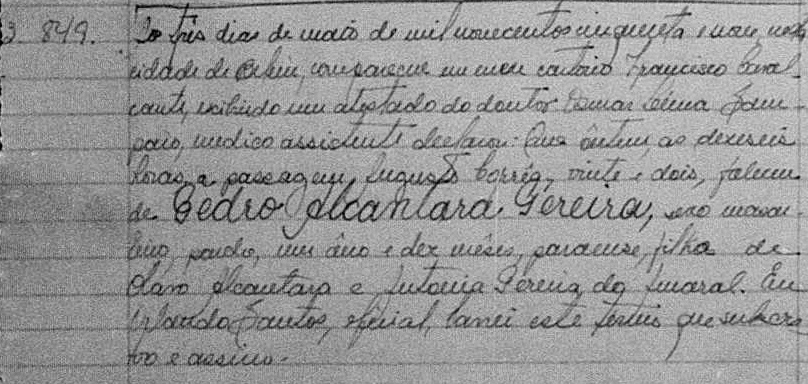 849. Aos três dias de maio de mil novecentos cinquenta e nove, nesta
cidade de Belém, compareceu em meu cartório Francisco Caval
cante, exibindo um atestado do doutor Osmar Sam
paio, medico assistente declarou: Que ôntem, as dezeseis
horas, a passagem Augusto Corrêa, vinte e dois, faleceu
de Pedro Alcantara Pereira, sexo mascu
lino, pardo, um âno e dez mêses, paraense, filho de
Olavo Alcantara e Antonia Pereira do Amaral. Eu
Orlando Santos, oficial, lavrei este termo que subscre
vo e assino.